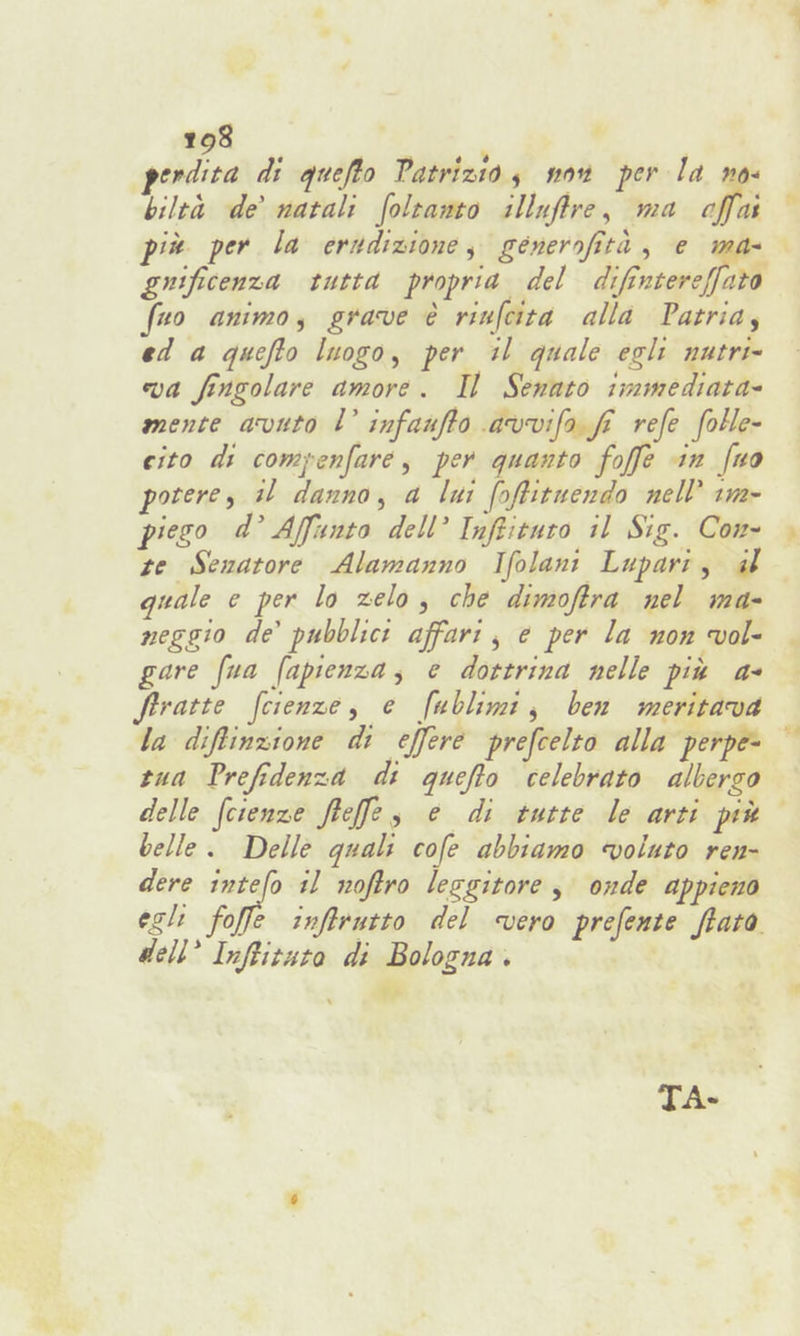 198
perdita di queſto Patrizio, non per la no-
biltà de' natali ſoltanto illuſtre, ma aſſai
più per la erudizione, generoſità, e ma-
gnificenza tutta propria del diſintereſſato
ſuo animo, grave è riuſcita alla Patria,
ed a queſto luogo, per il quale egli nutri-
va ſingolare amore. Il Senato immediata-
mente avuto l' infauſto avviſo ſi reſe ſolle-
cito di compenſare, per quanto foſſe in ſuo
potere, il danno, a lui ſoſtituendo nell' im-
piego d' Aſſunto dell' Inſtituto il Sig. Con-
te Senatore Alamanno Iſolani Lupari, il
quale e per lo zelo, che dimoſtra nel ma-
neggio de' pubblici affari, e per la non vol-
gare ſua ſapienza, e dottrina nelle più a-
ſtratte ſcienze, e ſublimi, ben meritava
la diſtinzione di eſſere preſcelto alla perpe-
tua Preſidenza di queſto celebrato albergo
delle ſcienze ſteſſe, e di tutte le arti più
belle. Delle quali coſe abbiamo voluto ren-
dere inteſo il noſtro leggitore, onde appieno
egli foſſe inſtrutto del vero preſente ſtato
dell' Inſtituto di Bologna.
TA-